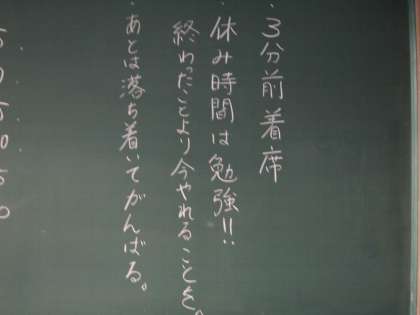 ・3分前着席
・休み時間は勉強!!
終わったことより今やれることを。
・あとは落ち着いてがんばる。